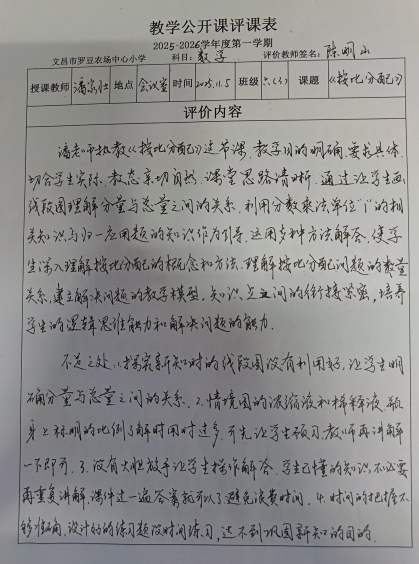 教学公开课评课表
2025-2026学年度第一学期
文昌市罗豆农场中心小学 科目：数学 评价教师签名：陈明山
授课教师 潘家壮 地点 会议室 时间 2025.11.5 班级 六(3) 课题 《按比分配》
评价内容
潘老师执教《按比分配》这节课，教学目的明确，要求具体，
切合学生实际，教态亲切自然，课堂思路清晰。通过让学生画
线段图理解分量与总量之间的关系，利用分数乘法单位"1"的相
关知识与归一应用题的知识作为引导，运用多种方法解答，使学
生深入理解按比分配的概念和方法，理解按比分配问题的数量
关系，建立解决问题的数学模型，知识点之间的衔接紧密，培养
学生的逻辑思维能力和解决问题的能力。
不足之处：1.探究新知时的线段图没有利用好，让学生明
确分量与总量之间的关系。2.情境图的浓缩液和稀释液，瓶
身上标明的比例了解时用时过多，可先让学生预习，教师再讲解
一下即可。3.没有大胆放手让学生操作解答，学生已懂的知识不必要
再重复讲解，课件过一遍答案就可以了避免浪费时间。4.时间的把握不
够准确，设计好的练习题没时间练习，达不到巩固新知的目的。